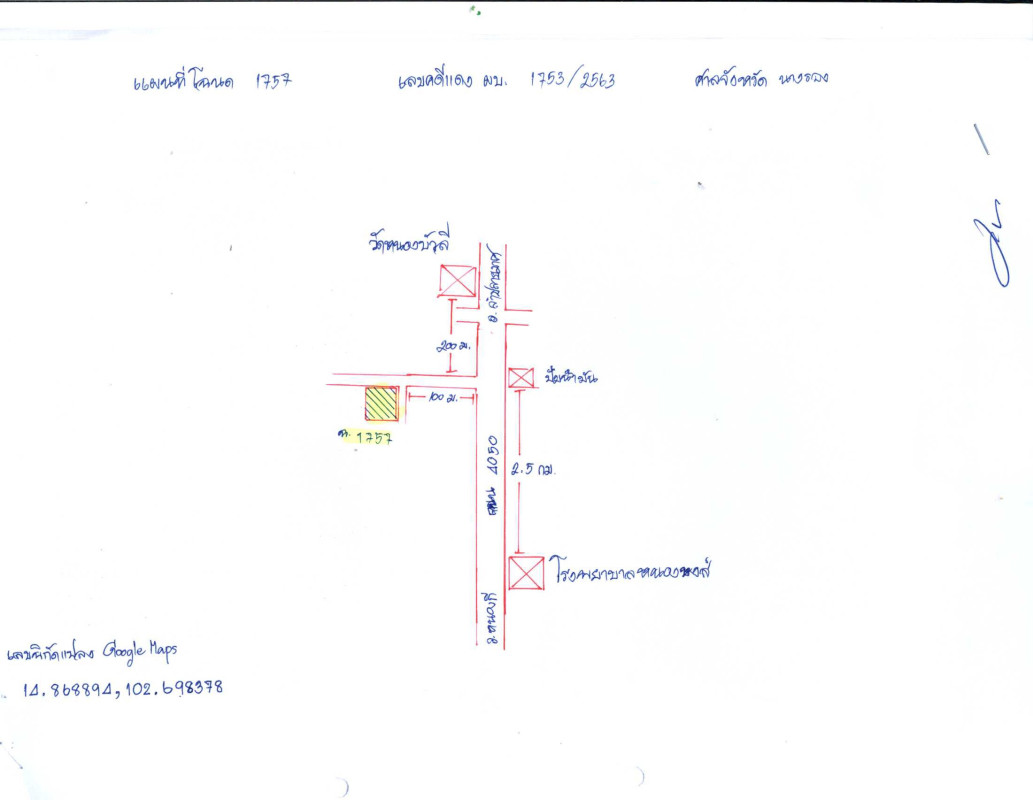 แผนที่โฉนด 1757 เลขคดีแดง ผบ. 1753/2563 ศาลจังหวัด นางรอง
วัดหนองบัวลี
อ. ลำปลายมาศ
200 ม.
ปั๊มน้ำมัน
100 ม.
ฉ. 1757
ถนน 4050
2.5 กม.
โรงพยาบาลหนองหงส์
อ.หนองกี่
เลขพิกัดแปลง Google Maps
14.868894,102.698378